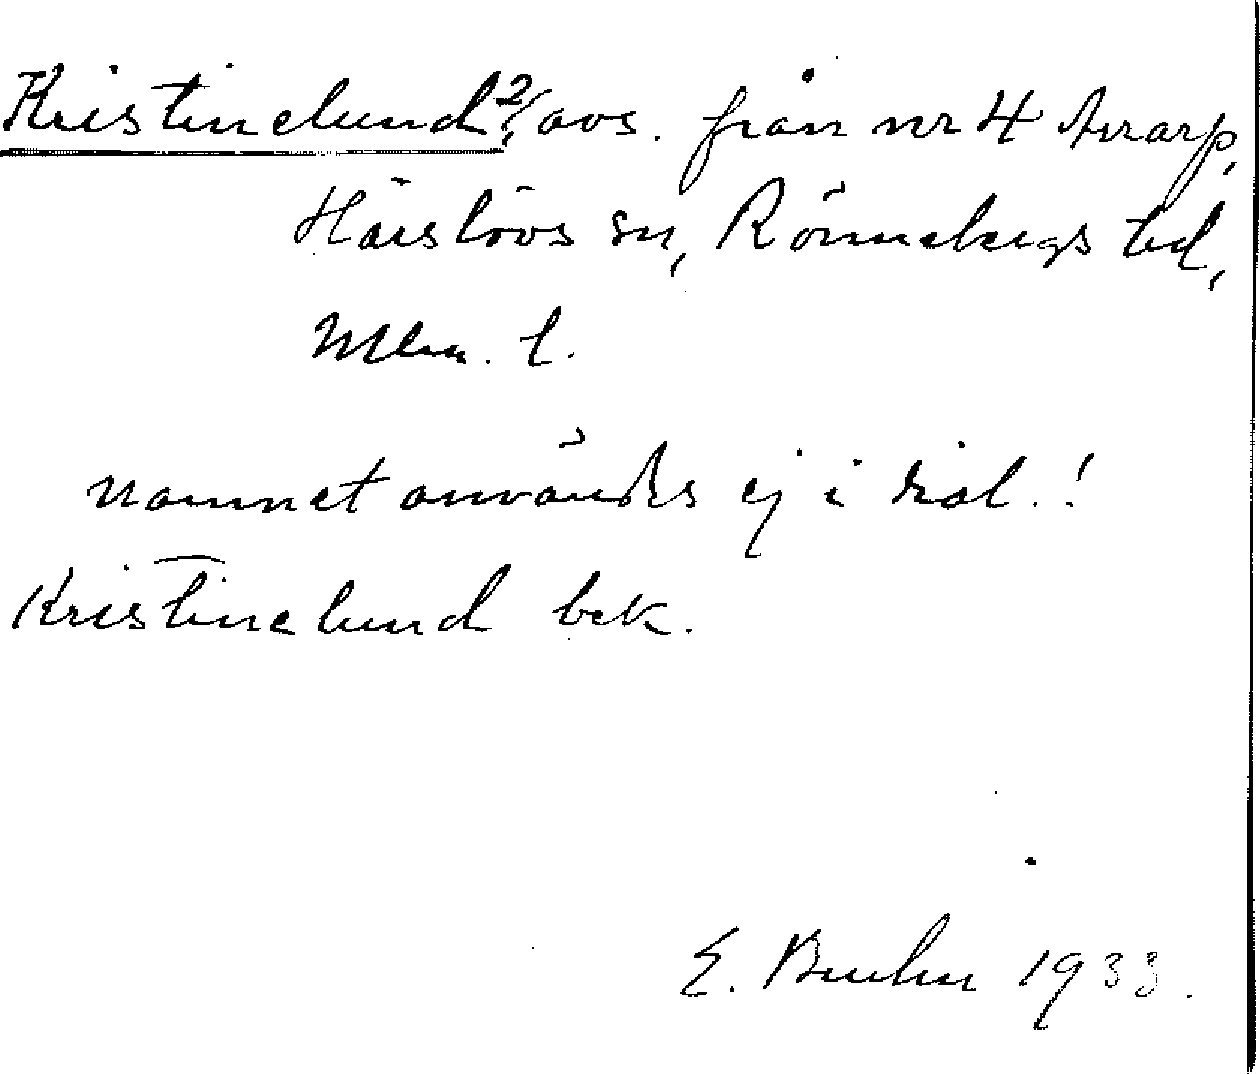 Kristinelund 2/ avs. från nr 4 Arrarp,
Härslövs sn, Rönnebergs hd,
Mlm. l.
namnet användes ej i dial.!
Kristinelund bek.
E. Bruhn 1933.